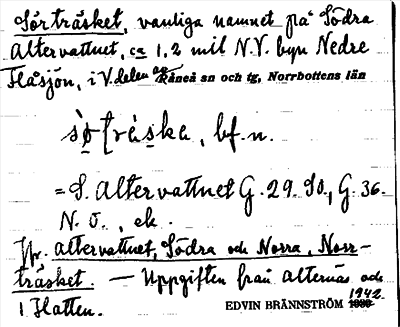 Sörträsket, vanliga namnet på Södra
Altervattnet, ca 1,2 mil N.V. byn Nedre
Flåsjön, i V. delen av Råneå sn och tg, Norrbottens län
bf. n.
= S. Altervattnet G. 29. SO., G. 36.
N. O., ek.
Jfr. Altervattnet, Södra och Norra, Norr-
träsket. — Uppgiften från Alternäs och
1942.
i Flatten. EDVIN BRÄNNSTRÖM 1930